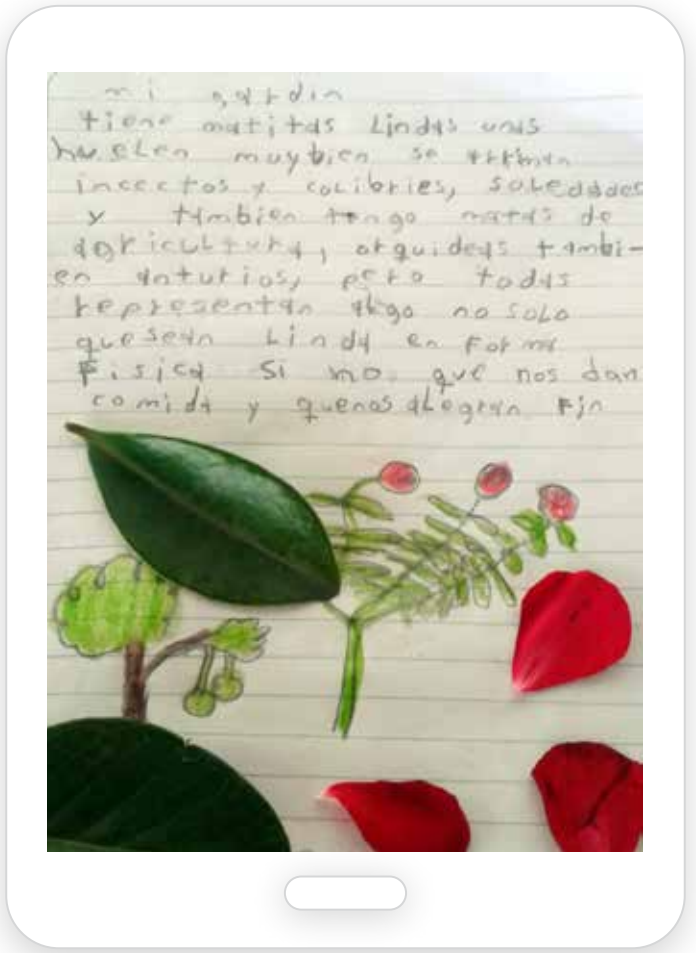 mi gardin
tiene matitas Lindas unas
huelen muy bien se arriman
incectos y colibries, soledades
y tambien tengo matas de
agricultura, orquideas tambi-
en anturios, pero todas
representan algo no solo
que sean Linda en Forma
Fisica Si mo que nos dan
comida y quenos aLegran Fin